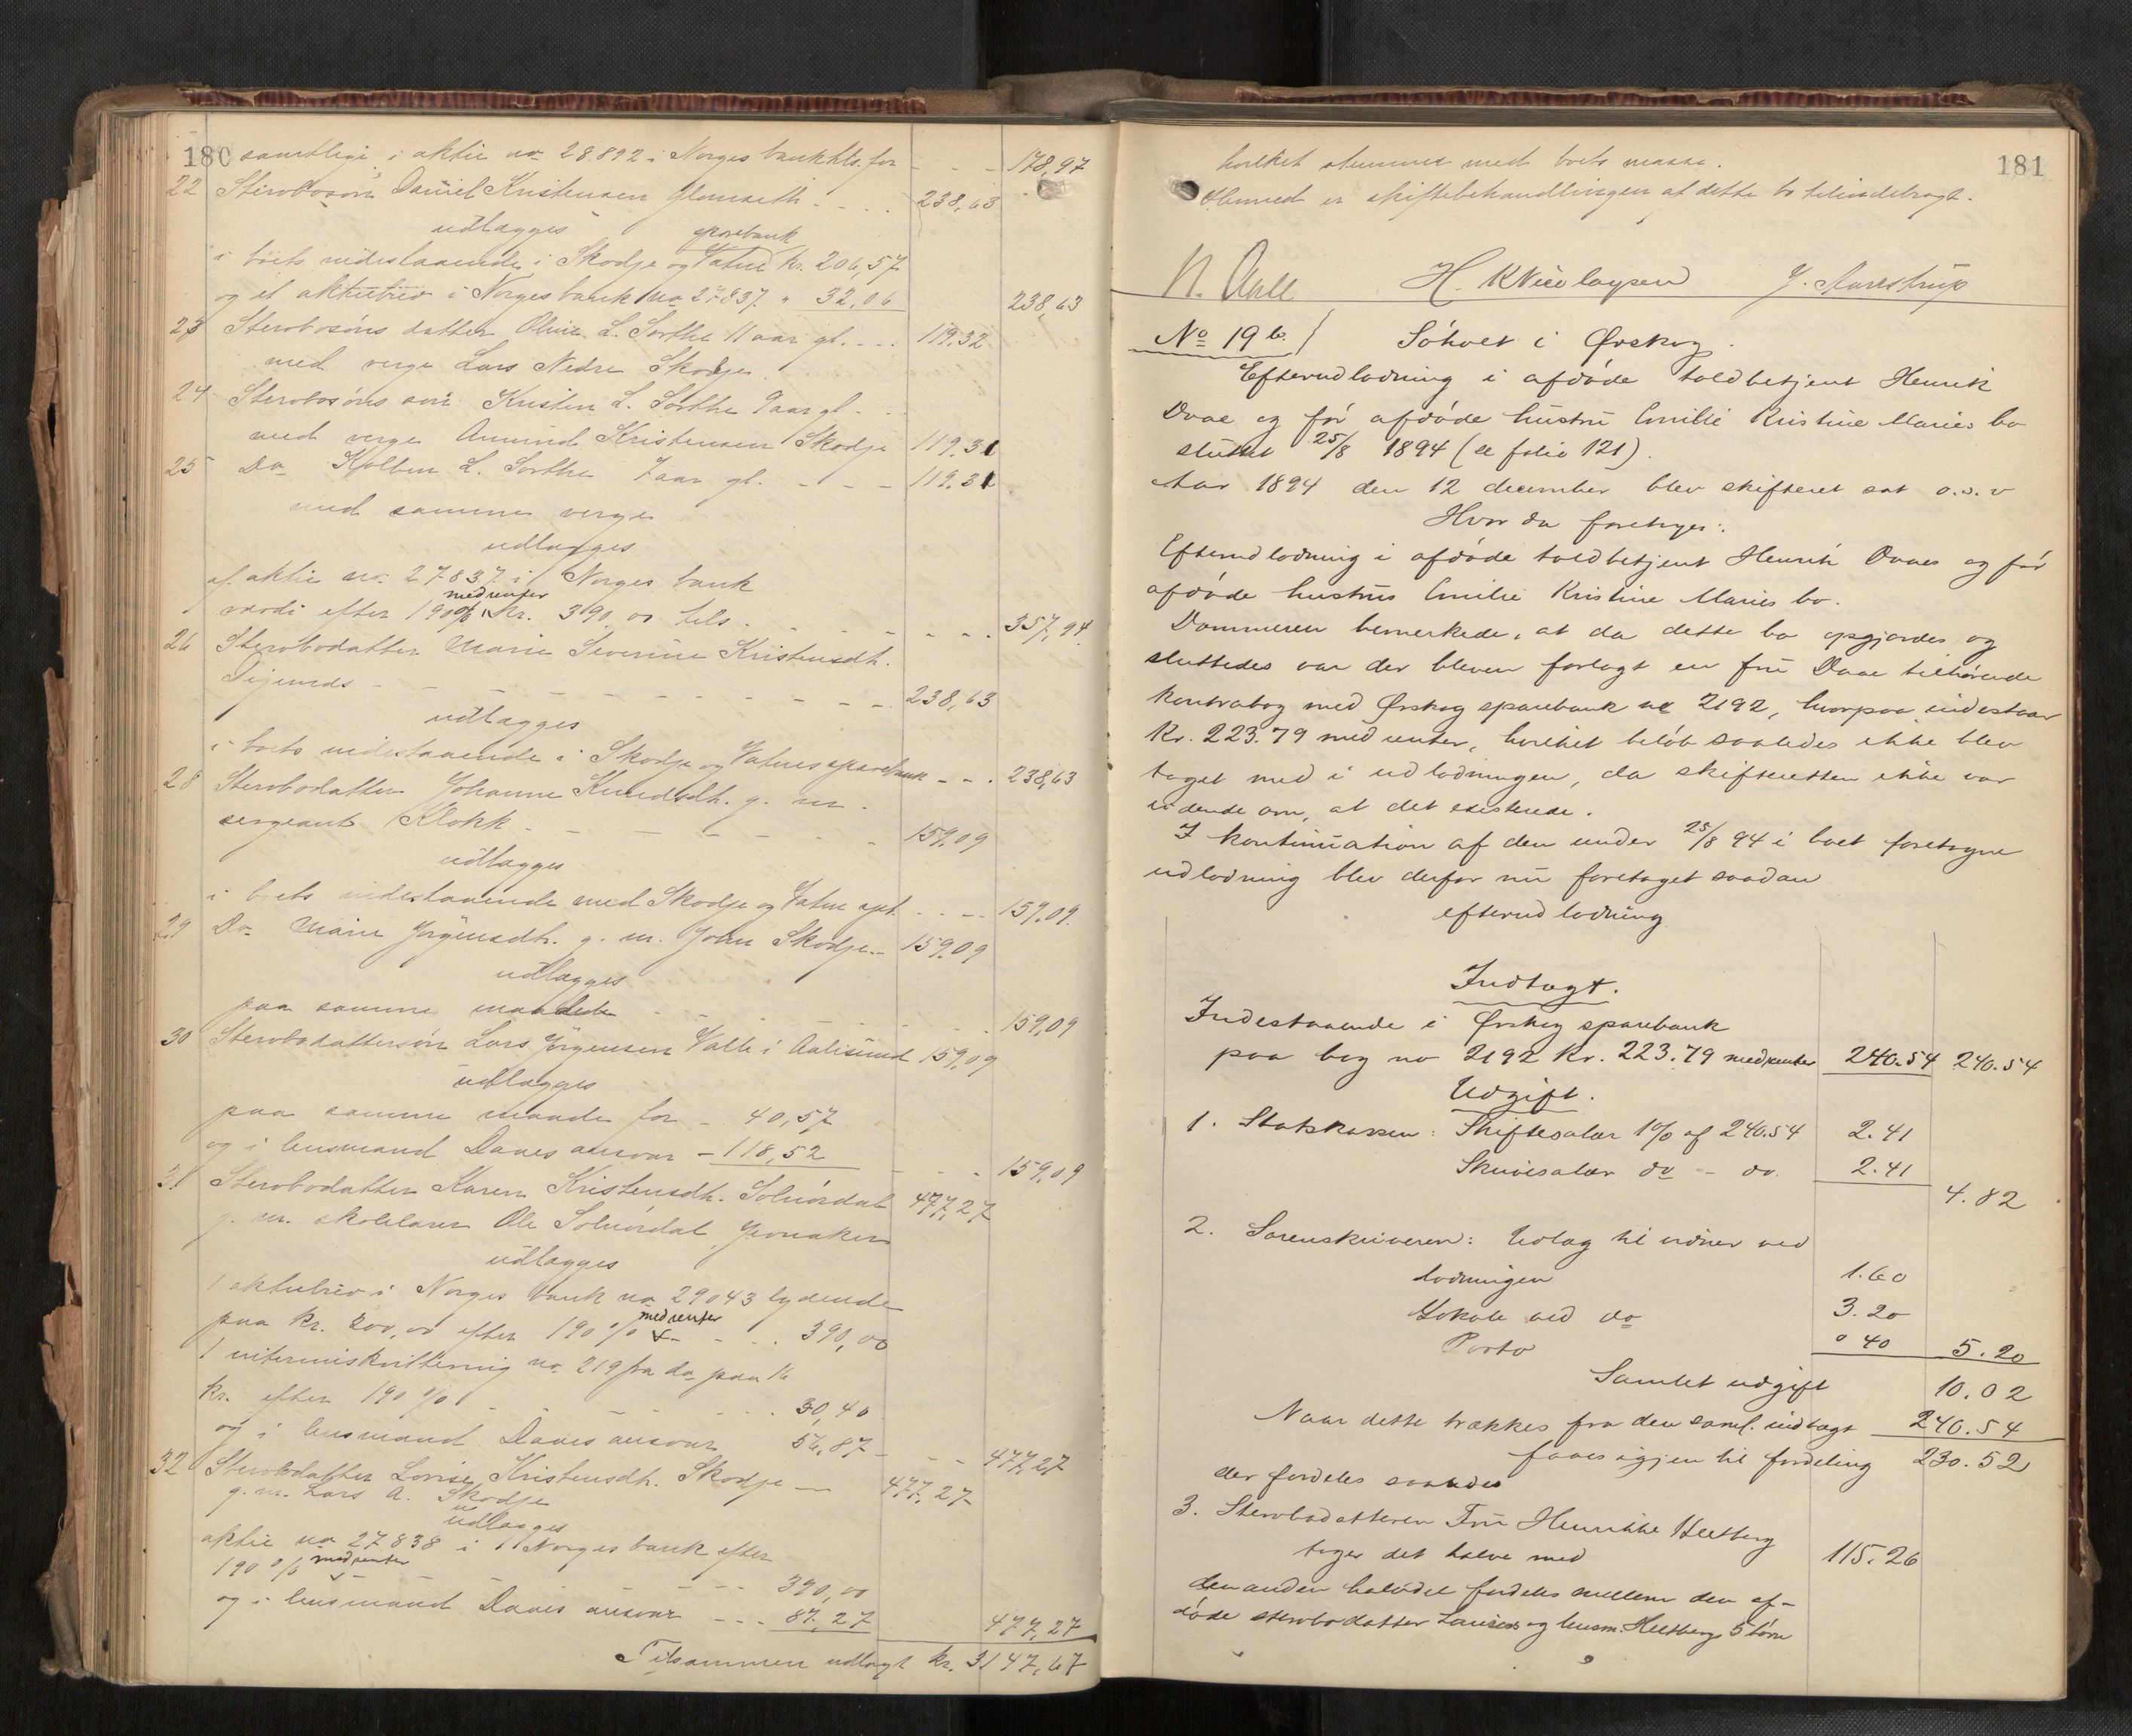 180
samtlige i aktie no 28892 i Norges bank tils. for - - - 178,97
22 Stervbosøn Daniel Kristensen Glomseth - - - - 238,63
udlægges
sparebank
i boets indestaaende i Skodje og Vatne kr. 206,57
og et aktiebrev i Norges bank no 27837. " 32,06 238,63
23 Stervbosøns datter Oline L. Sorthe 11 aar gl. - - - 119.32
med verge Lars Nedre Skodje
24 Stervbosøns søn Kristen L. Sorthe 9 aar gl -
med verge Amund Kristensen Skodje 119.31
25 Do Kolben L. Sorthe 7 aar gl. - - - 119.31
med samme verge
udlægges
af aktie no. 27837 i Norges bank
med renter
værdi efter 190% kr. 390.00 tils. - - - - - - 357,94
26 Stervbodatter Marie Severine Kristensdh.
Digernes - - - - - - - - - 238,63
udlægges
i boets indestaaende i Skodje og Vatnes sparebank - - - 238,63
28 Stervbodatter Johanne Knudsdh. g. m.
sergeant Klokk - - - - - - - 159,09
udlægges
i boets indestaaende med Skodje og Vatne spb. - - - - 159,09.
29 Do Marie Jørgensdh. g. m. John Skodje - - 159,09
udlægges
paa samme maade - - - - - - - 159,09
30 Stervbodattersøn Lars Jørgensen Valle i Aalesund 159,09
udlægges
paa samme maade for - 40,57
og i lensmand Daaes ansvar - 118,52 - - - 159,09
31 Stervbodatter Karen Kristensdh. Solnørdal 477,27
g. m. skolelærer Ole Solnørdal, Jevnaker
udlægges
1 aktiebrev i Norges bank no 29043 lydende
med renter
paa kr. 200,00 efter 190 % - - - 390,00
1 interimskvittering no. 219 fra do paa 16
kr. efter 190 % - - - - - - 30,40
og i lensmand Daaes ansvar 56,87 - - - 477,27
32 Stervbodatter Lovise Kristensdh. Skodje - 477,27
g. m. Lars A. Skodje
udlægges
aktie no 27838 i Norges bank efter
190 % med renter - - - - - - 390,00
og i lensmand Daaes ansvar - - - 87,27 477,27
Tilsammen udlagt kr. 3147,67
181
hvilket stemmer med boets masse.
Hermed er skiftebehandlingen af dette bo tilendebragt.
N. Aall H. K Nicolaysen J. Aarestrup
No 19 b. Søholt i Ørskog.
Efterudlodning i afdøde toldbetjent Henrik
Daae og før afdøde hustru Emilie Kristine Maries bo
sluttet 25/8 1894 (se folio 121).
Aar 1894 den 12 december blev skifteret sat o.s.v
Hvor da foretoges:
Efterudlodning i afdøde toldbetjent Henrik Daaes og før
afdøde hustrus Emilie Kristine Maries bo.
Dommeren bemerkede, at da dette bo opgjordes og
sluttedes var der bleven forlagt en fru Daae tilhørende
kontrabog med Ørskog sparebank no 2192, hvorpaa indestaar
kr. 223.79 med renter, hvilket beløb saaledes ikke blev
taget med i udlodningen, da skifteretten ikke var
vidende om, at det existerede.
I kontinuation af den under 25/8 94 i boet foretagne
udlodning blev derfor nu foretaget saadan
efterudlodning
Indtægt.
Indestaaende i Ørskog sparebank
paa bog no 2192 kr. 223.79 med renter 240.54 240.54
Udgift.
1. Statskassen: Skiftesalær 1% af 240.54 2.41
Skrivesalær do - do. 2.41
4.82
2. Sorenskriveren: Udlæg til vidner ved
lodningen 1.60
Lokale ved do 3.20
Porto 0 40 5.20
Samlet udgift 10.02
Naar dette trækkes fra den saml. indtægt 240.54
faaes igjen til fordeling 230.52
der fordeles saaledes
3. Stervbodatteren Fru Henrikke Heltberg
tager det halve med 115.26
den anden halvdel fordeles mellem den af-
døde stervbodatter Lauises og lensm. Heltbergs 5 børn